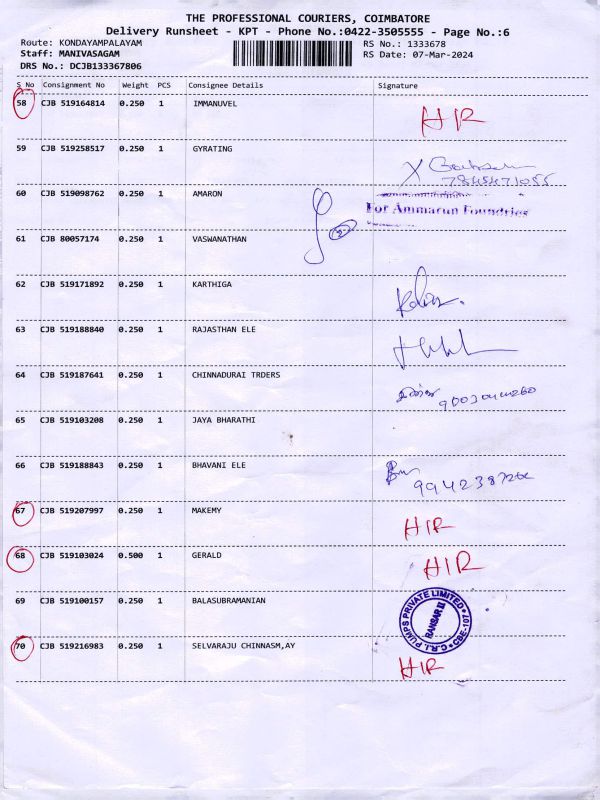 THE PROFESSIONAL COURIERS, COIMBATORE
Delivery Runsheet - KPT - Phone No.:0422-3505555 - Page No.:6
Route: KONDAYAMPALAYAM RS No.: 1333678
Staff: MANIVASAGAM RS Date: 07-Mar-2024
DRS No.: DCJB133367806
S No Consignment No Weight PCS Consignee Details Signature
58 CJB 519164814 0.250 1 IMMANUVEL HIR
59 CJB 519258517 0.250 1 GYRATING
60 CJB 519098762 0.250 1 AMARON For Ammarun Foundries
61 CJB 80057174 0.250 1 VASWANATHAN 2
62 CJB 519171892 0.250 1 KARTHIGA
63 CJB 519188840 0.250 1 RAJASTHAN ELE
64 CJB 519187641 0.250 1 CHINNADURAI TRDERS
65 CJB 519103208 0.250 1 JAYA BHARATHI
66 CJB 519188843 0.250 1 BHAVANI ELE
67 CJB 519207997 0.250 1 MAKEMY HIR
68 CJB 519103024 0.500 1 GERALD HIR
69 CJB 519100157 0.250 1 BALASUBRAMANIAN C.R.I. PUMPS PRIVATE LIMITED
70 CJB 519216983 0.250 1 SELVARAJU CHINNASM,AY HIR